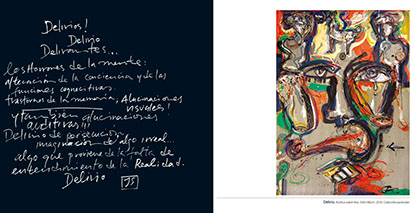 Delirios!
Delirio
Delirantes...
los Horrores de la mente:
alteración de la conciencia y de las
funciones cognoscitivas.
trastornos de la memoria, Alucinaciones
visuales!
y también alucinaciones
auditivas!!!
Delirio de persecución.
imaginación de algo irreal...
algo que proviene de la falta de
entendimiento de la Realidad.
Delirio
Delirio. Acrílico sobre lino.
Colección particular